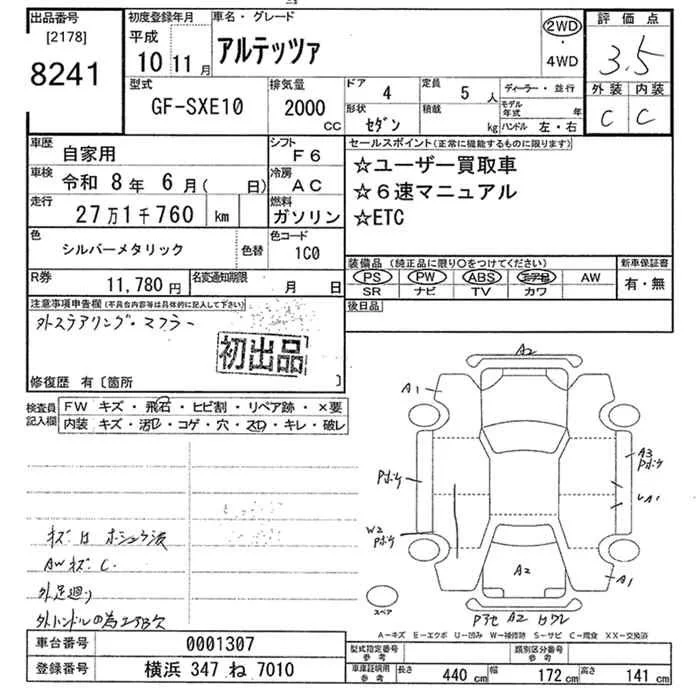 出品番号
[2178]
8241
初度登録年月
平成
10 11 月
車名・グレード
アルテッツァ
2WD
・
4WD
評価点
3.5
外装 内装
C C
型式
GF-SXE10
排気量
2000
CC
ドア 4
定員 5 人
形状 セダン
積載 kg
ディーラー・並行
モデル年式 年
ハンドル 左・右
車歴 自家用
シフト F6
車検 令和 8年 6月( 日)
冷房 AC
走行 27万1千760 km
燃料 ガソリン
色 シルバーメタリック 色替
色コード 1C0
R券 11,780円
名変通知期限 月 日
セールスポイント(正常に機能するものに限ります)
☆ユーザー買取車
☆6速マニュアル
☆ETC
装備品 (純正品に限り○をつけてください)
PS PW ABS エアB AW
SR ナビ TV カワ
新車保証書
有・無
後日品
注意事項申告欄(不具合内容等は具体的に記入して下さい)
外ステアリング・マフラー
初出品
修復歴 有〔箇所 〕
検査員記入欄
FW キズ・飛石・ヒビ割・リペア跡・×要
内装 キズ・汚レ・コゲ・穴・スレ・キレ・破レ
キズ
AWキズ C.
外足廻り
外ハンドルの為
A2
A1
A3
Pボケ
Pボケ
A1
W2
Pボケ
A2
A1
スペア
A2
A-キズ E-エクボ U-凹み W-補修跡 S-サビ C-腐食 XX-交換済
車台番号 0001307
登録番号 横浜 347 ね 7010
型式指定番号 参考
類別区分番号 参考
車庫証明用 参考
長さ 440 cm
幅 172 cm
高さ 141 cm